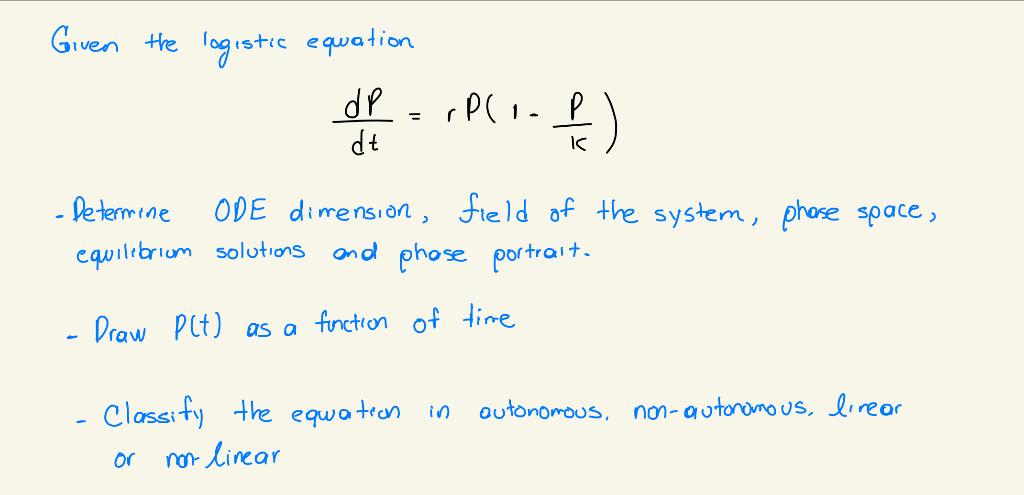 Given the logistic equation
dP/dt = rP(1 - P/K)
- Determine ODE dimension, field of the system, phase space,
equilibrium solutions and phase portrait.
- Draw P(t) as a function of time
- Classify the equation in autonomous, non-autonomous, linear
or non linear